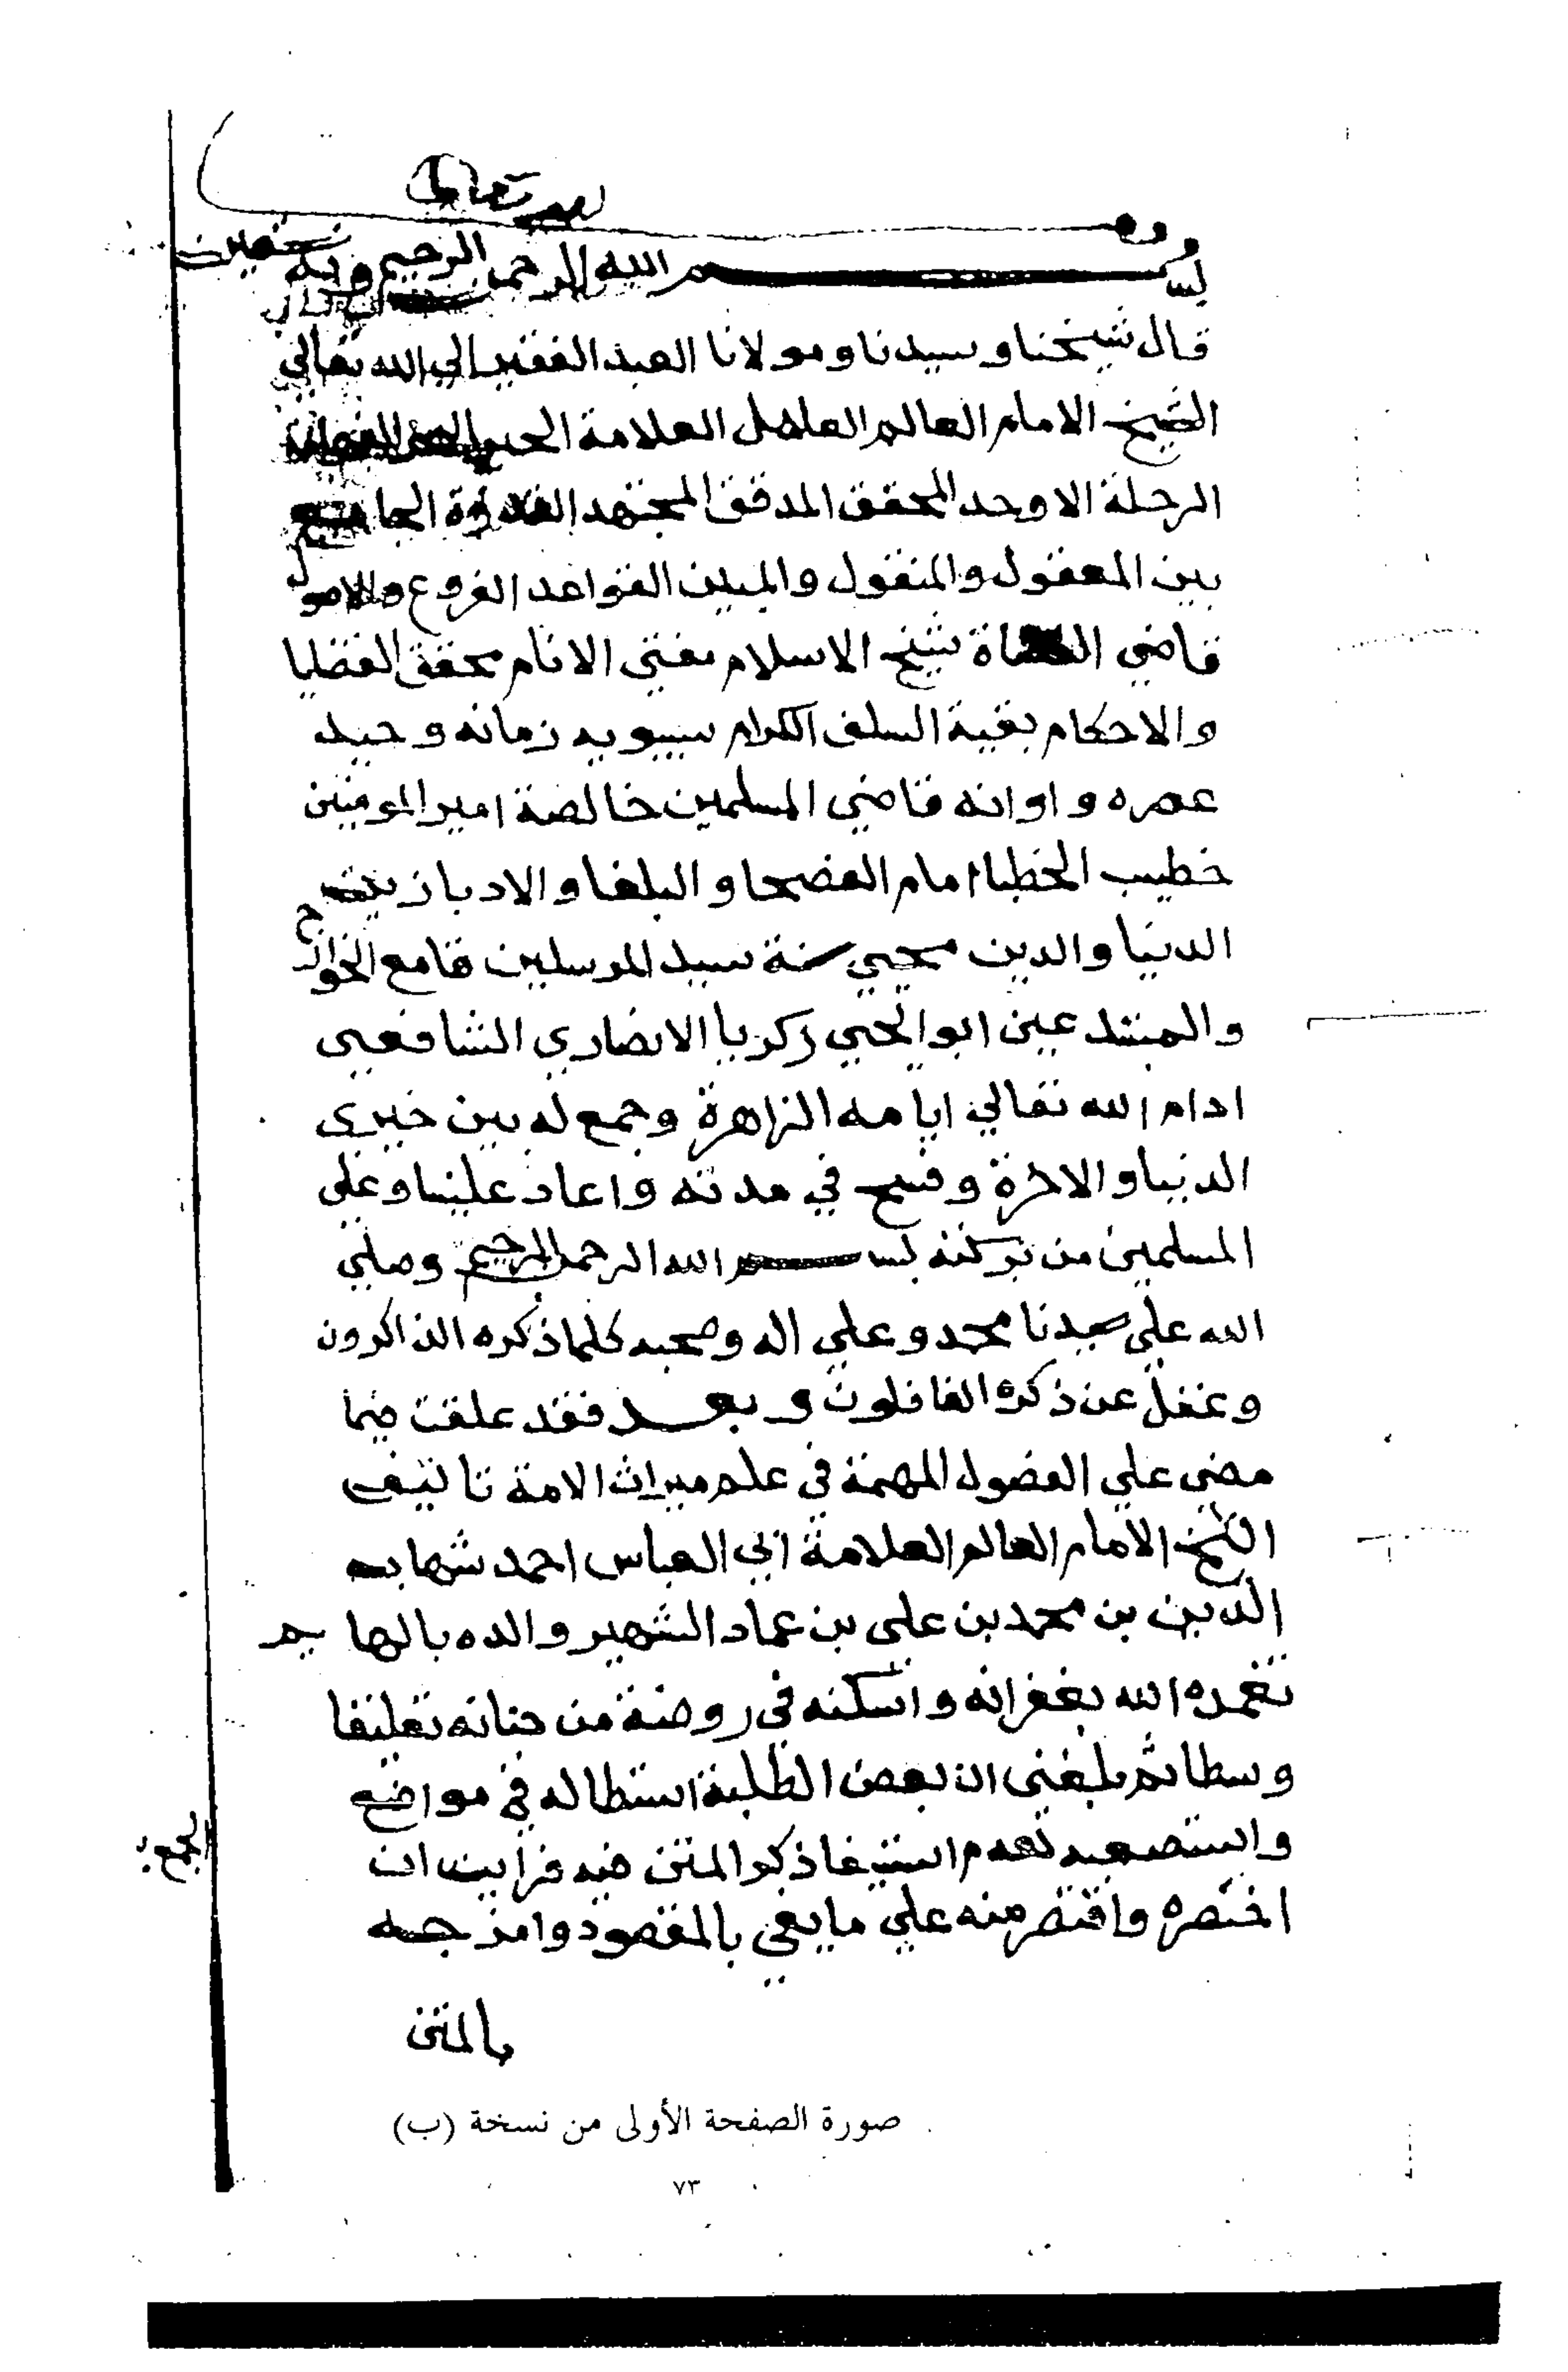 وقف
لله تعالى
بسم الله الرحمن الرحيم وبه نستعين
قال شيخنا وسيدنا ومولانا العبد الفقير الي الله تعالي
الشيخ الامام العالم العامل العلامة الحبر البحر الفهامة
الرحلة الاوحد المحقق المدقق المجتهد القدوة الجامع
بين المعقول والمنقول والمبين القواعد الفروع والاصول
قاضي القضاة شيخ الاسلام مفتي الانام محقق القضايا
والاحكام بقية السلف الكرام سيبويه زمانه وحيد
عصره واوانه قاضي المسلمين خالصة امير المومنين
خطيب الخطبا امام الفصحا والبلغا والادبا زين
الدنيا والدين محيي سنة سيد المرسلين قامع الخوارج
والمبتدعين ابو الحيي زكريا الانصاري الشافعي
ادام الله تعالي ايامه الزاهرة وجمع له بين خيري
الدنيا والاخرة وفسح في مدته واعاد علينا وعلي
المسلمين من بركته بسم الله الرحمن الرحيم وصلي
الله علي سيدنا محمد وعلي اله وصحبه كلما ذكره الذاكرون
وغفل عن ذكره الغافلون وبعد فقد علقت فيما
مضي علي الفصول المهمة في علم ميراث الامة تاليف
الشيخ الامام العالم العلامة ابي العباس احمد شهاب
الدين بن محمد بن علي بن عماد الشهير والده بالهايم
تغمده الله بغفرانه واسكنه في روضة من جنانه تعليقا
وسطا ثم بلغني ان بعض الطلبة استطاله في مواضع
واستصعبه لعدم استيفا ذكر المتن فيه فرايت ان
اختصره واقتصر منه علي ما يفي بالمقصود وامزجه
بالمتن
صورة الصفحة الأولى من نسخة (ب)
٧٣